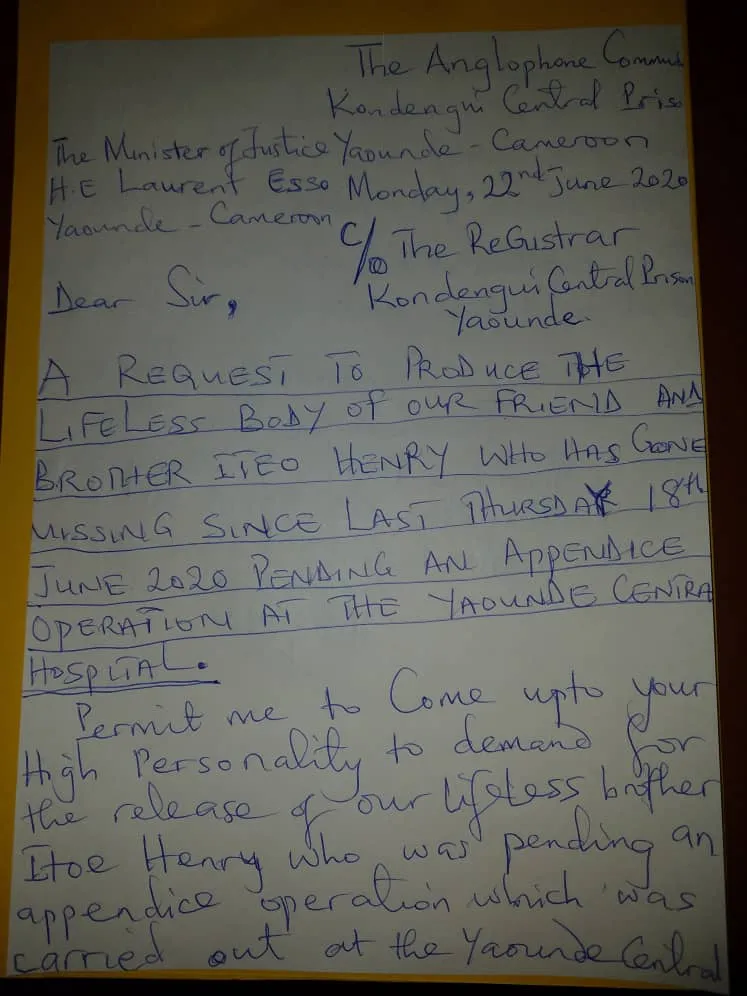 The Anglophone Commu
Kondengui Central Priso
The Minister of Justice Yaounde - Cameroon
H.E Laurent Esso Monday, 22nd June 2020
Yaounde - Cameroon
C/o The ReGistrar
Dear Sir, Kondengui Central Prison
Yaounde.
A REQUEST TO PRODUCE THE
LIFELESS BODY OF OUR FRIEND AND
BROTHER ITEO HENRY WHO HAS GONE
MISSING SINCE LAST THURSDAY 18th
JUNE 2020 PENDING AN APPENDICE
OPERATION AT THE YAOUNDE CENTRA
HOSPITAL.
Permit me to Come upto your
High Personality to demand for
the release of our lifeless brother
Itoe Henry who was pending an
appendice operation which was
carried out at the Yaounde Central